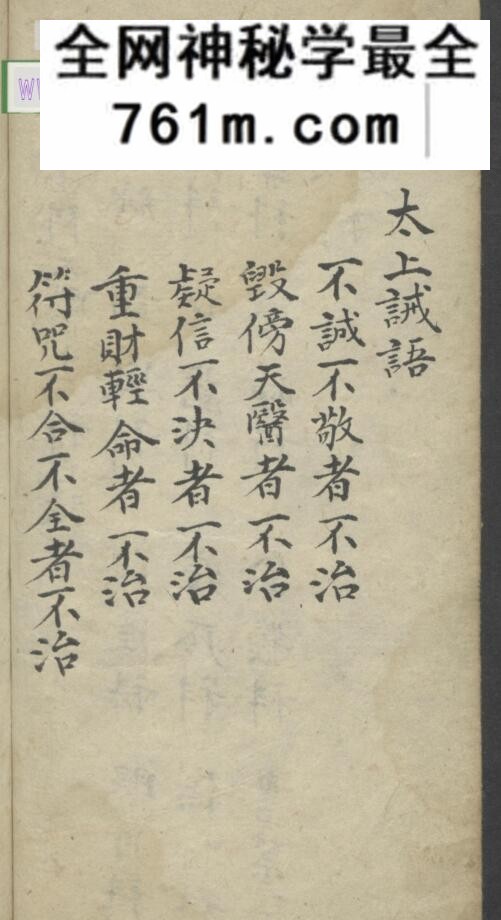 全网神秘学最全
761m.com
W
太上誡語
不誠不敬者不治
毀傍天醫者不治
疑信不决者不治
重財輕命者不治
符咒不合不全者不治